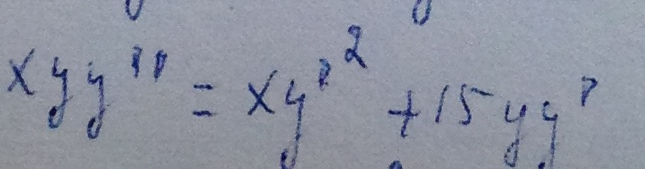 xyy'' = xy'² + 15yy'